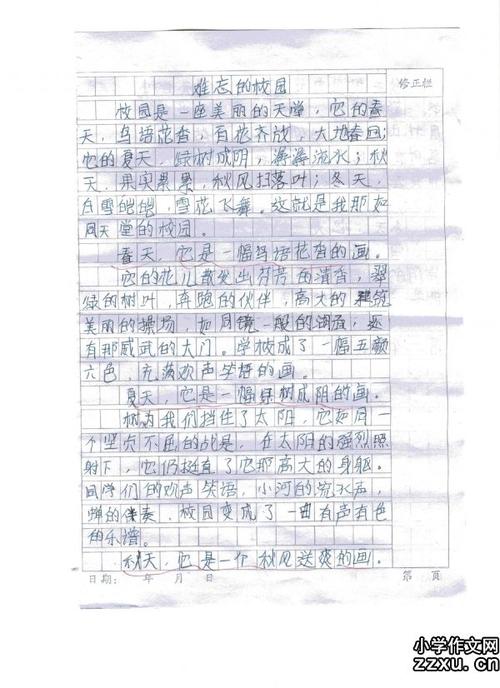 难忘的校园
修正栏
校园是一座美丽的天堂，它的春
天，鸟语花香，百花齐放，大地春回；
它的夏天，绿树成阴，潺潺流水；秋
天，果实累累，秋风扫落叶；冬天，
白雪皑皑，雪花飞舞。这就是我那如
同天堂的校园。
春天，它是一幅鸟语花香的画。
它的花儿散发出芬芳的清香，翠
绿的树叶，奔跑的伙伴，高大的建筑
美丽的操场，如同镜一般的湖面，还
有那威武的大门。学校成了一幅五颜
六色，充满欢声笑语的画。
夏天，它是一幅绿树成阴的画。
树为我们挡住了太阳，它如同一
个坚贞不屈的战是，在太阳的强烈照
射下，它仍挺直了它那高大的身躯。
同学们的欢声笑语，小河的流水声，
蝉的伴奏，校园变成了一曲有声有色
的乐谱。
秋天，它是一个秋风送爽的画。
日期： 年 月 日 第 页
小学作文网
zzxu.cn